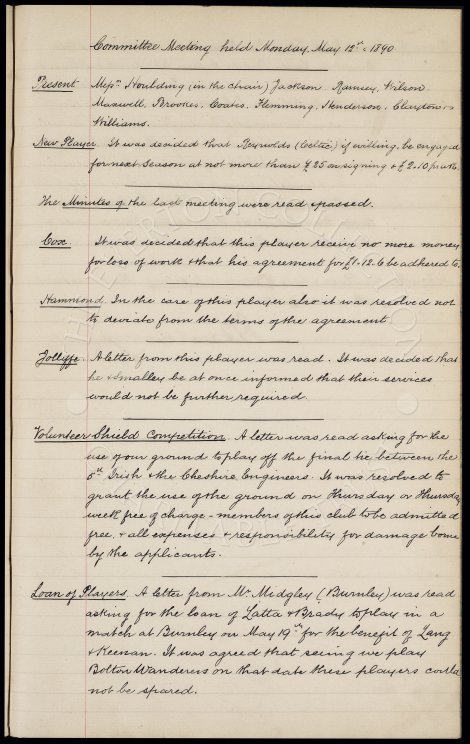 Committee Meeting held Monday, May 12th 1890
Present Messrs Houlding (in the chair) Jackson. Ramsey, Wilson
Maxwell, Brookes, Coates, Flemming, Henderson, Claydon &
Williams.
New Player. It was decided that Reynolds (Celtic) if willing, be engaged
for next Season at not more than £35 on signing & £2.10/ p wk.
The Minutes of the last meeting were read & passed.
Cox. It was decided that this player receive no more money
for loss of work & that his agreement for £1.12.6 be adhered to.
Hammond. In the case of this player also it was resolved not
to deviate from the terms of the agreement
Jolliffe. A letter from this player was read. It was decided that
he & Smalley be at once informed that their services
would not be further required.
Volunteer Shield Competition. A letter was read asking for the
use of our ground to play off the final tie between the
5th Irish & the Cheshire Engineers. It was resolved to
grant the use of the ground on Thursday or Thursday
week free of charge - members of this club to be admitted
free, & all expenses & responsibility for damage borne
by the applicants.
Loan of Players. A letter from Mr. Midgley (Burnley) was read
asking for the loan of Latta & Brady to play in a
match at Burnley on May 19th for the benefit of Lang
& Keenan. It was agreed that seeing we play
Bolton Wanderers on that date these players could
not be spared.